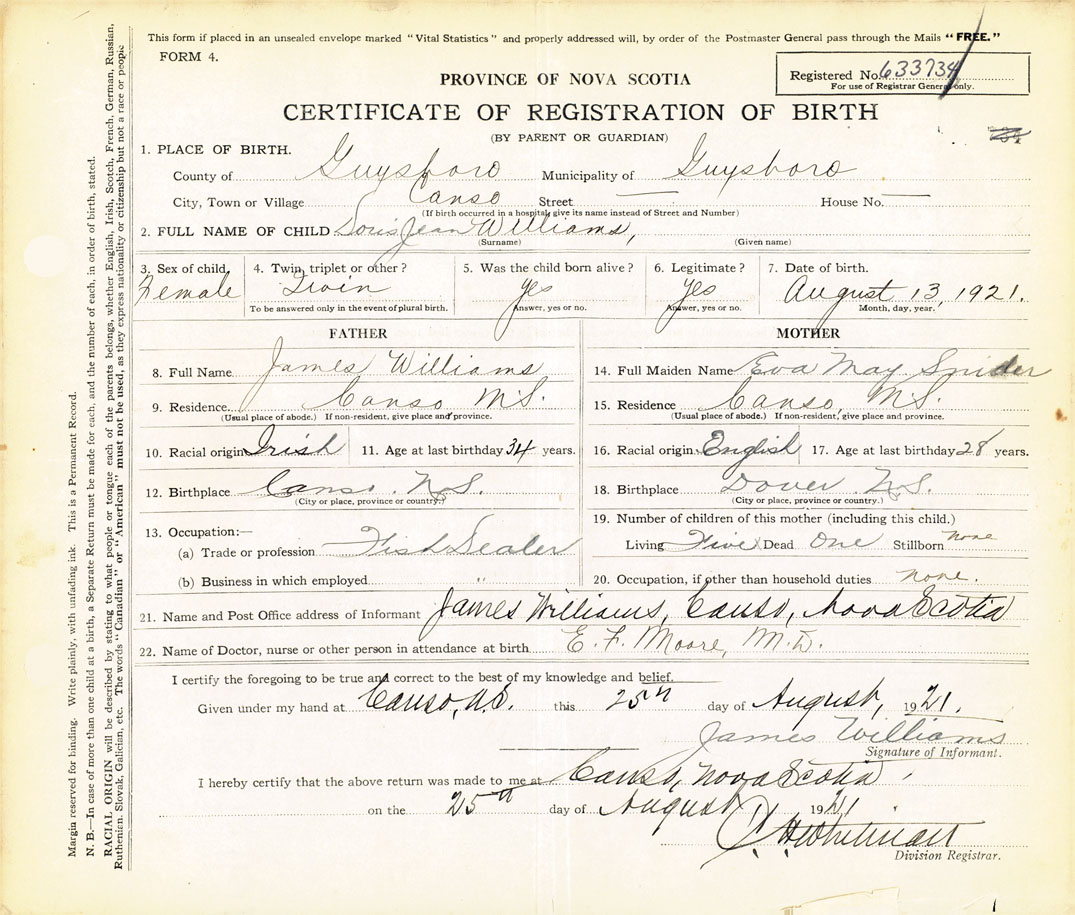 This form if placed in an unsealed envelope marked "Vital Statistics" and properly addressed will, by order of the Postmaster General pass through the Mails "FREE."
FORM 4.
Registered No. 633734
For use of Registrar General only.
PROVINCE OF NOVA SCOTIA
CERTIFICATE OF REGISTRATION OF BIRTH
(BY PARENT OR GUARDIAN)
1. PLACE OF BIRTH.
County of Guysboro Municipality of Guysboro
City, Town or Village Canso Street — House No. —
(If birth occurred in a hospital, give its name instead of Street and Number)
2. FULL NAME OF CHILD Doris Jean Williams,
(Surname) (Given name)
3. Sex of child. 4. Twin, triplet or other? 5. Was the child born alive? 6. Legitimate? 7. Date of birth.
Female Twin Yes Yes August 13, 1921.
To be answered only in the event of plural birth. Answer, yes or no. Answer, yes or no. Month, day, year.
FATHER
8. Full Name James Williams
9. Residence Canso N.S.
(Usual place of abode.) If non-resident, give place and province.
10. Racial origin Irish 11. Age at last birthday 34 years.
12. Birthplace Canso. N.S.
(City or place, province or country.)
13. Occupation:—
(a) Trade or profession Fish Dealer
(b) Business in which employed "
MOTHER
14. Full Maiden Name Eva May Snider
15. Residence Canso, N.S.
(Usual place of abode.) If non-resident, give place and province.
16. Racial origin English 17. Age at last birthday 28 years.
18. Birthplace Dover N.S.
(City or place, province or country.)
19. Number of children of this mother (including this child.)
Living Five Dead One Stillborn none
20. Occupation, if other than household duties none.
21. Name and Post Office address of Informant James Williams, Canso, Nova Scotia
22. Name of Doctor, nurse or other person in attendance at birth E. F. Moore, M.D.
I certify the foregoing to be true and correct to the best of my knowledge and belief.
Given under my hand at Canso, N.S. this 25th day of August, 1921.
James Williams
Signature of Informant.
I hereby certify that the above return was made to me at Canso, Nova Scotia
on the 25th day of August 1921
Division Registrar.
Margin reserved for binding. Write plainly, with unfading ink. This is a Permanent Record.
N. B.—In case of more than one child at a birth, a Separate Return must be made for each, and the number of each, in order of birth, stated.
RACIAL ORIGIN will be described by stating to what people or tongue each of the parents belongs, whether English, Irish, Scotch, French, German, Russian,
Ruthenian, Slovak, Galician, etc. The words "Canadian" or "American" must not be used, as they express nationality or citizenship but not a race or people